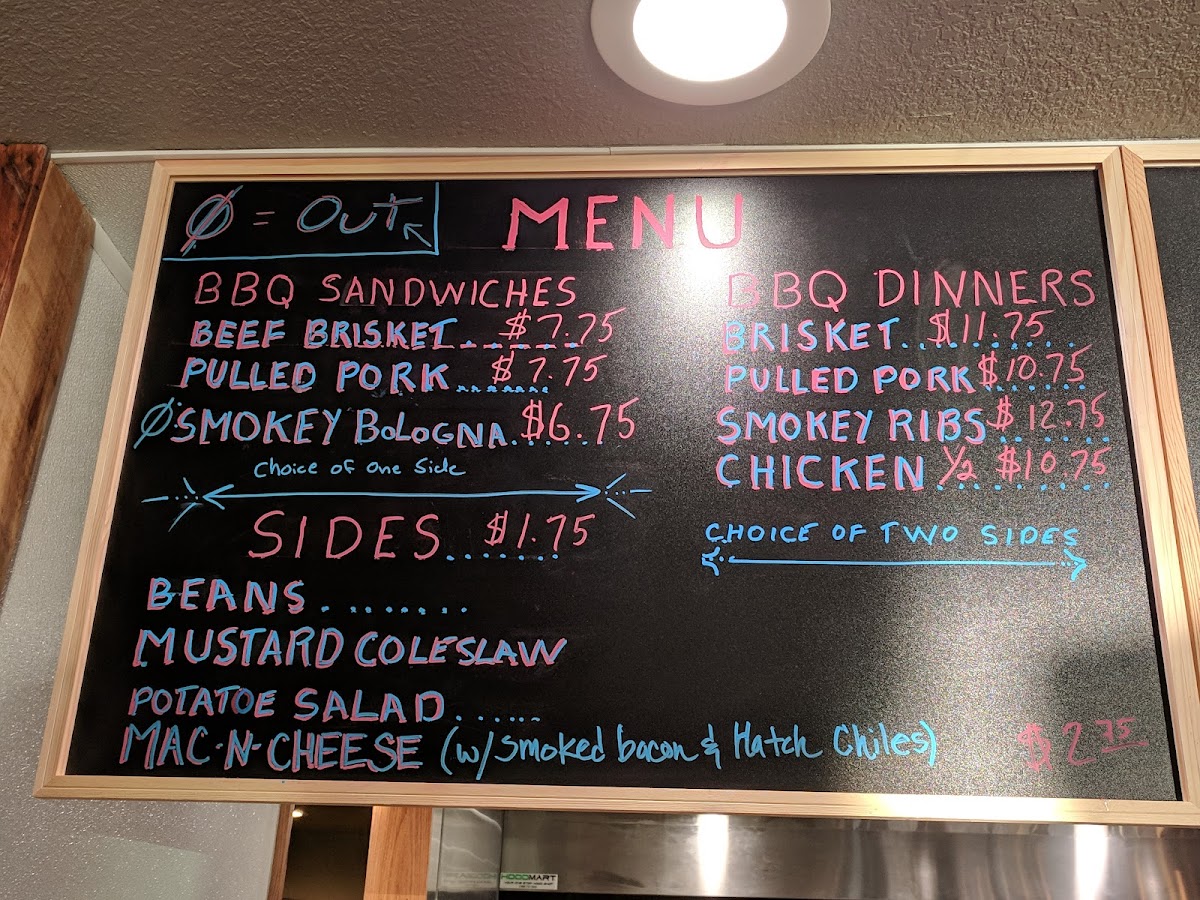 Ø = OUT
MENU
BBQ SANDWICHES
BEEF BRISKET........$7.75
PULLED PORK.......$7.75
Ø SMOKEY BOLOGNA.....$6.75
Choice of one Side
SIDES.......$1.75
BEANS........
MUSTARD COLESLAW
POTATOE SALAD......
MAC-N-CHEESE (w/ smoked bacon & Hatch Chiles) $2.75
BBQ DINNERS
BRISKET........$11.75
PULLED PORK $10.75
SMOKEY RIBS $12.75
CHICKEN 1/2 $10.75
CHOICE OF TWO SIDES
HOODMART